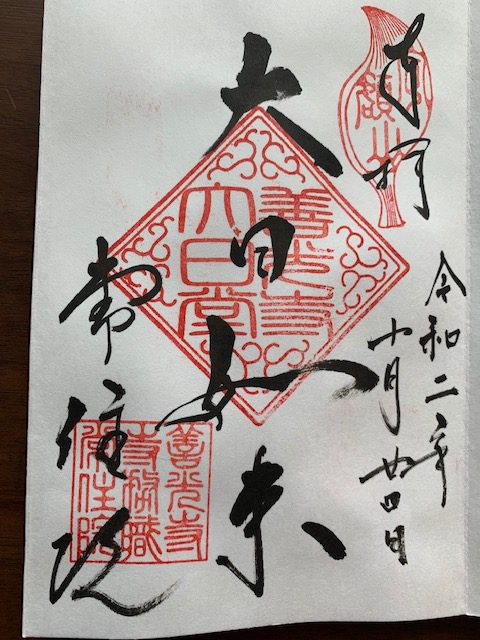 奉拝
令和二年
十月廿四日
大日如来
善光寺
大日堂
常住院
善光寺
寺務職
常住院